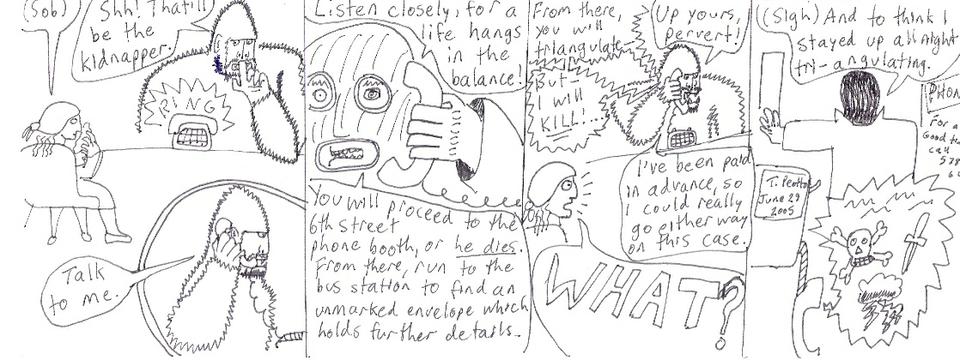 (Sob)
Shh! That'll
be the
kidnapper.
RING
Talk
to me.
Listen closely, for a
life hangs
in the
balance!
You will proceed to the
6th street
phone booth, or he dies.
From there, run to the
bus station to find an
unmarked envelope which
holds further details.
From there,
you will
triangulate
But
I will
KILL!...
Up yours,
pervert!
I've been paid
in advance, so
I could really
go either way
on this case.
WHAT?
(Sigh) And to think I
stayed up all night
tri-angulating.
PHON
For a
Good t
call
578
T. Peotto
June 29
2005